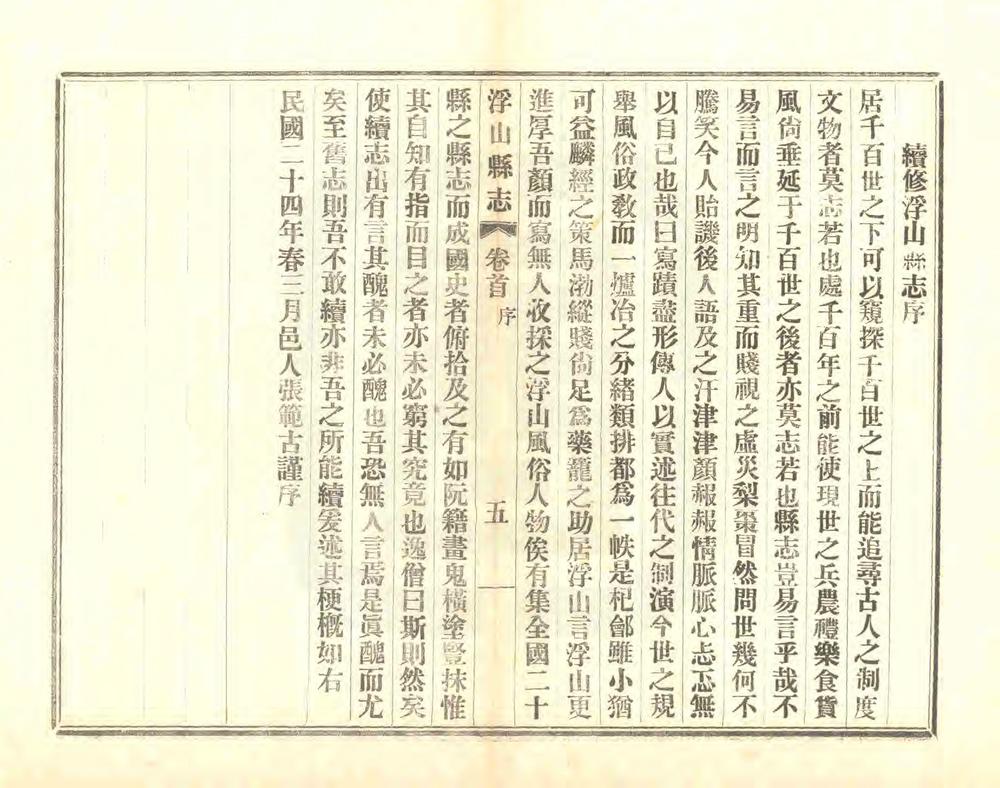 續修浮山縣志序
居千百世之下可以窺探千百世之上而能追尋古人之制度
文物者莫志若也處千百年之前能使現世之兵農禮樂食貨
風尙垂延于千百世之後者亦莫志若也縣志豈易言乎哉不
易言而言之明知其重而賤視之虛災梨棗冒然問世幾何不
騰笑今人貽譏後人語及之汗津津顏赧赧情脈脈心忐忑無
以自已也哉曰寫蹟盡形傳人以實述往代之制演今世之規
舉風俗政敎而一爐冶之分緒類排都爲一帙是杞鄫雖小猶
可益麟經之策馬渤縱賤尙足爲藥籠之助居浮山言浮山更
進厚吾顏而寫無人收採之浮山風俗人物俟有集全國二十
浮山縣志 卷首 序 五
縣之縣志而成國史者俯拾及之有如阮籍畫鬼橫塗豎抹惟
其自知有指而目之者亦未必窮其究竟也逸僧曰斯則然矣
使續志出有言其醜者未必醜也吾恐無人言焉是眞醜而尤
矣至舊志則吾不敢續亦非吾之所能續爰述其梗概如右
民國二十四年春三月邑人張範古謹序